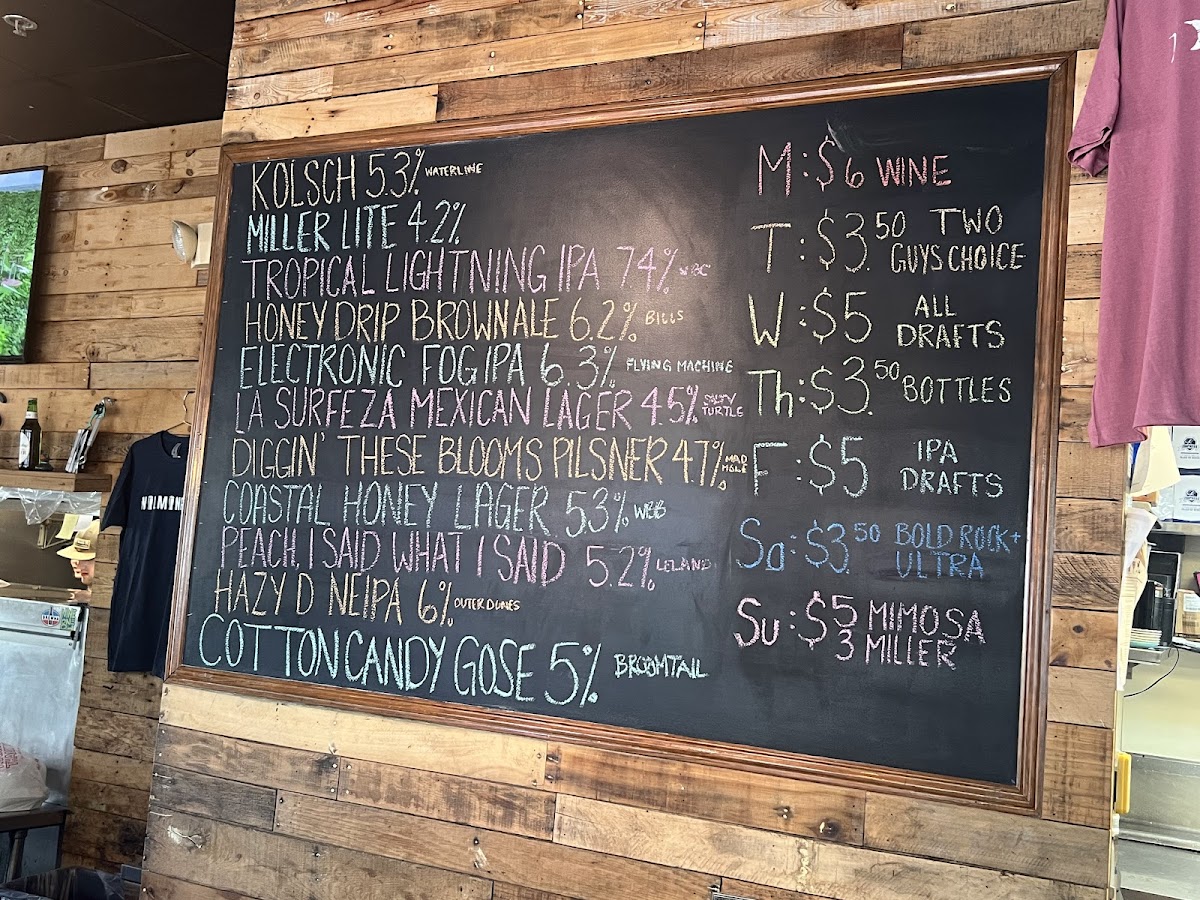 KOLSCH 5.3% WATERLINE
MILLER LITE 4.2%
TROPICAL LIGHTNING IPA 7.4% WBC
HONEY DRIP BROWN ALE 6.2% BILLS
ELECTRONIC FOG IPA 6.3% FLYING MACHINE
LA SURFEZA MEXICAN LAGER 4.5% SALTY TURTLE
DIGGIN' THESE BLOOMS PILSNER 4.7% MAD MOLE
COASTAL HONEY LAGER 5.3% WBB
PEACH, I SAID WHAT I SAID 5.2% LELAND
HAZY D NEIPA 6% OUTER DUNES
COTTON CANDY GOSE 5% BROOMTAIL
M: $6 WINE
T: $3.50 TWO
GUYS CHOICE
W: $5 ALL
DRAFTS
Th: $3.50 BOTTLES
F: $5 IPA
DRAFTS
Sa: $3.50 BOLD ROCK+
ULTRA
Su: $5 MIMOSA
3 MILLER